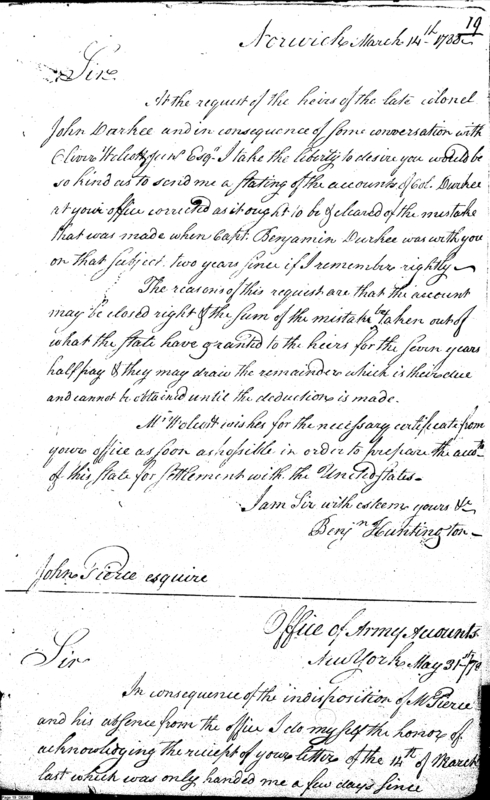 19
Norwich March 14th 1788
Sir
At the request of the heirs of the late Colonel
John Durkee and in consequence of some conversation with
Oliver Wolcott Junr Esqr I take the liberty to desire you would be
so kind as to send me a stating of the accounts of Col. Durkee
at your office corrected as it ought to be & cleared of the mistake
that was made when Capt. Benjamin Durkee was with you
on that subject two years since if I remember rightly
The reasons of this request are that the account
may be closed right & the sum of the mistake be taken out of
what the state have granted to the heirs for the seven years
half pay & they may draw the remainder which is their due
and cannot be obtained until the deduction is made.
Mr Wolcott wishes for the necessary certificate from
your office as soon as possible in order to prepare the accts
of this State for settlement with the United States.
I am Sir with esteem yours &c
Benjn Huntington
John Pierce esquire
Office of Army Accounts
New York May 31st
Sir
In consequence of the indisposition of Mr Pierce
and his absence from the office I do myself the honor of
acknowledging the receipt of your letter of the 14th of March
last which was only handed me a few days since